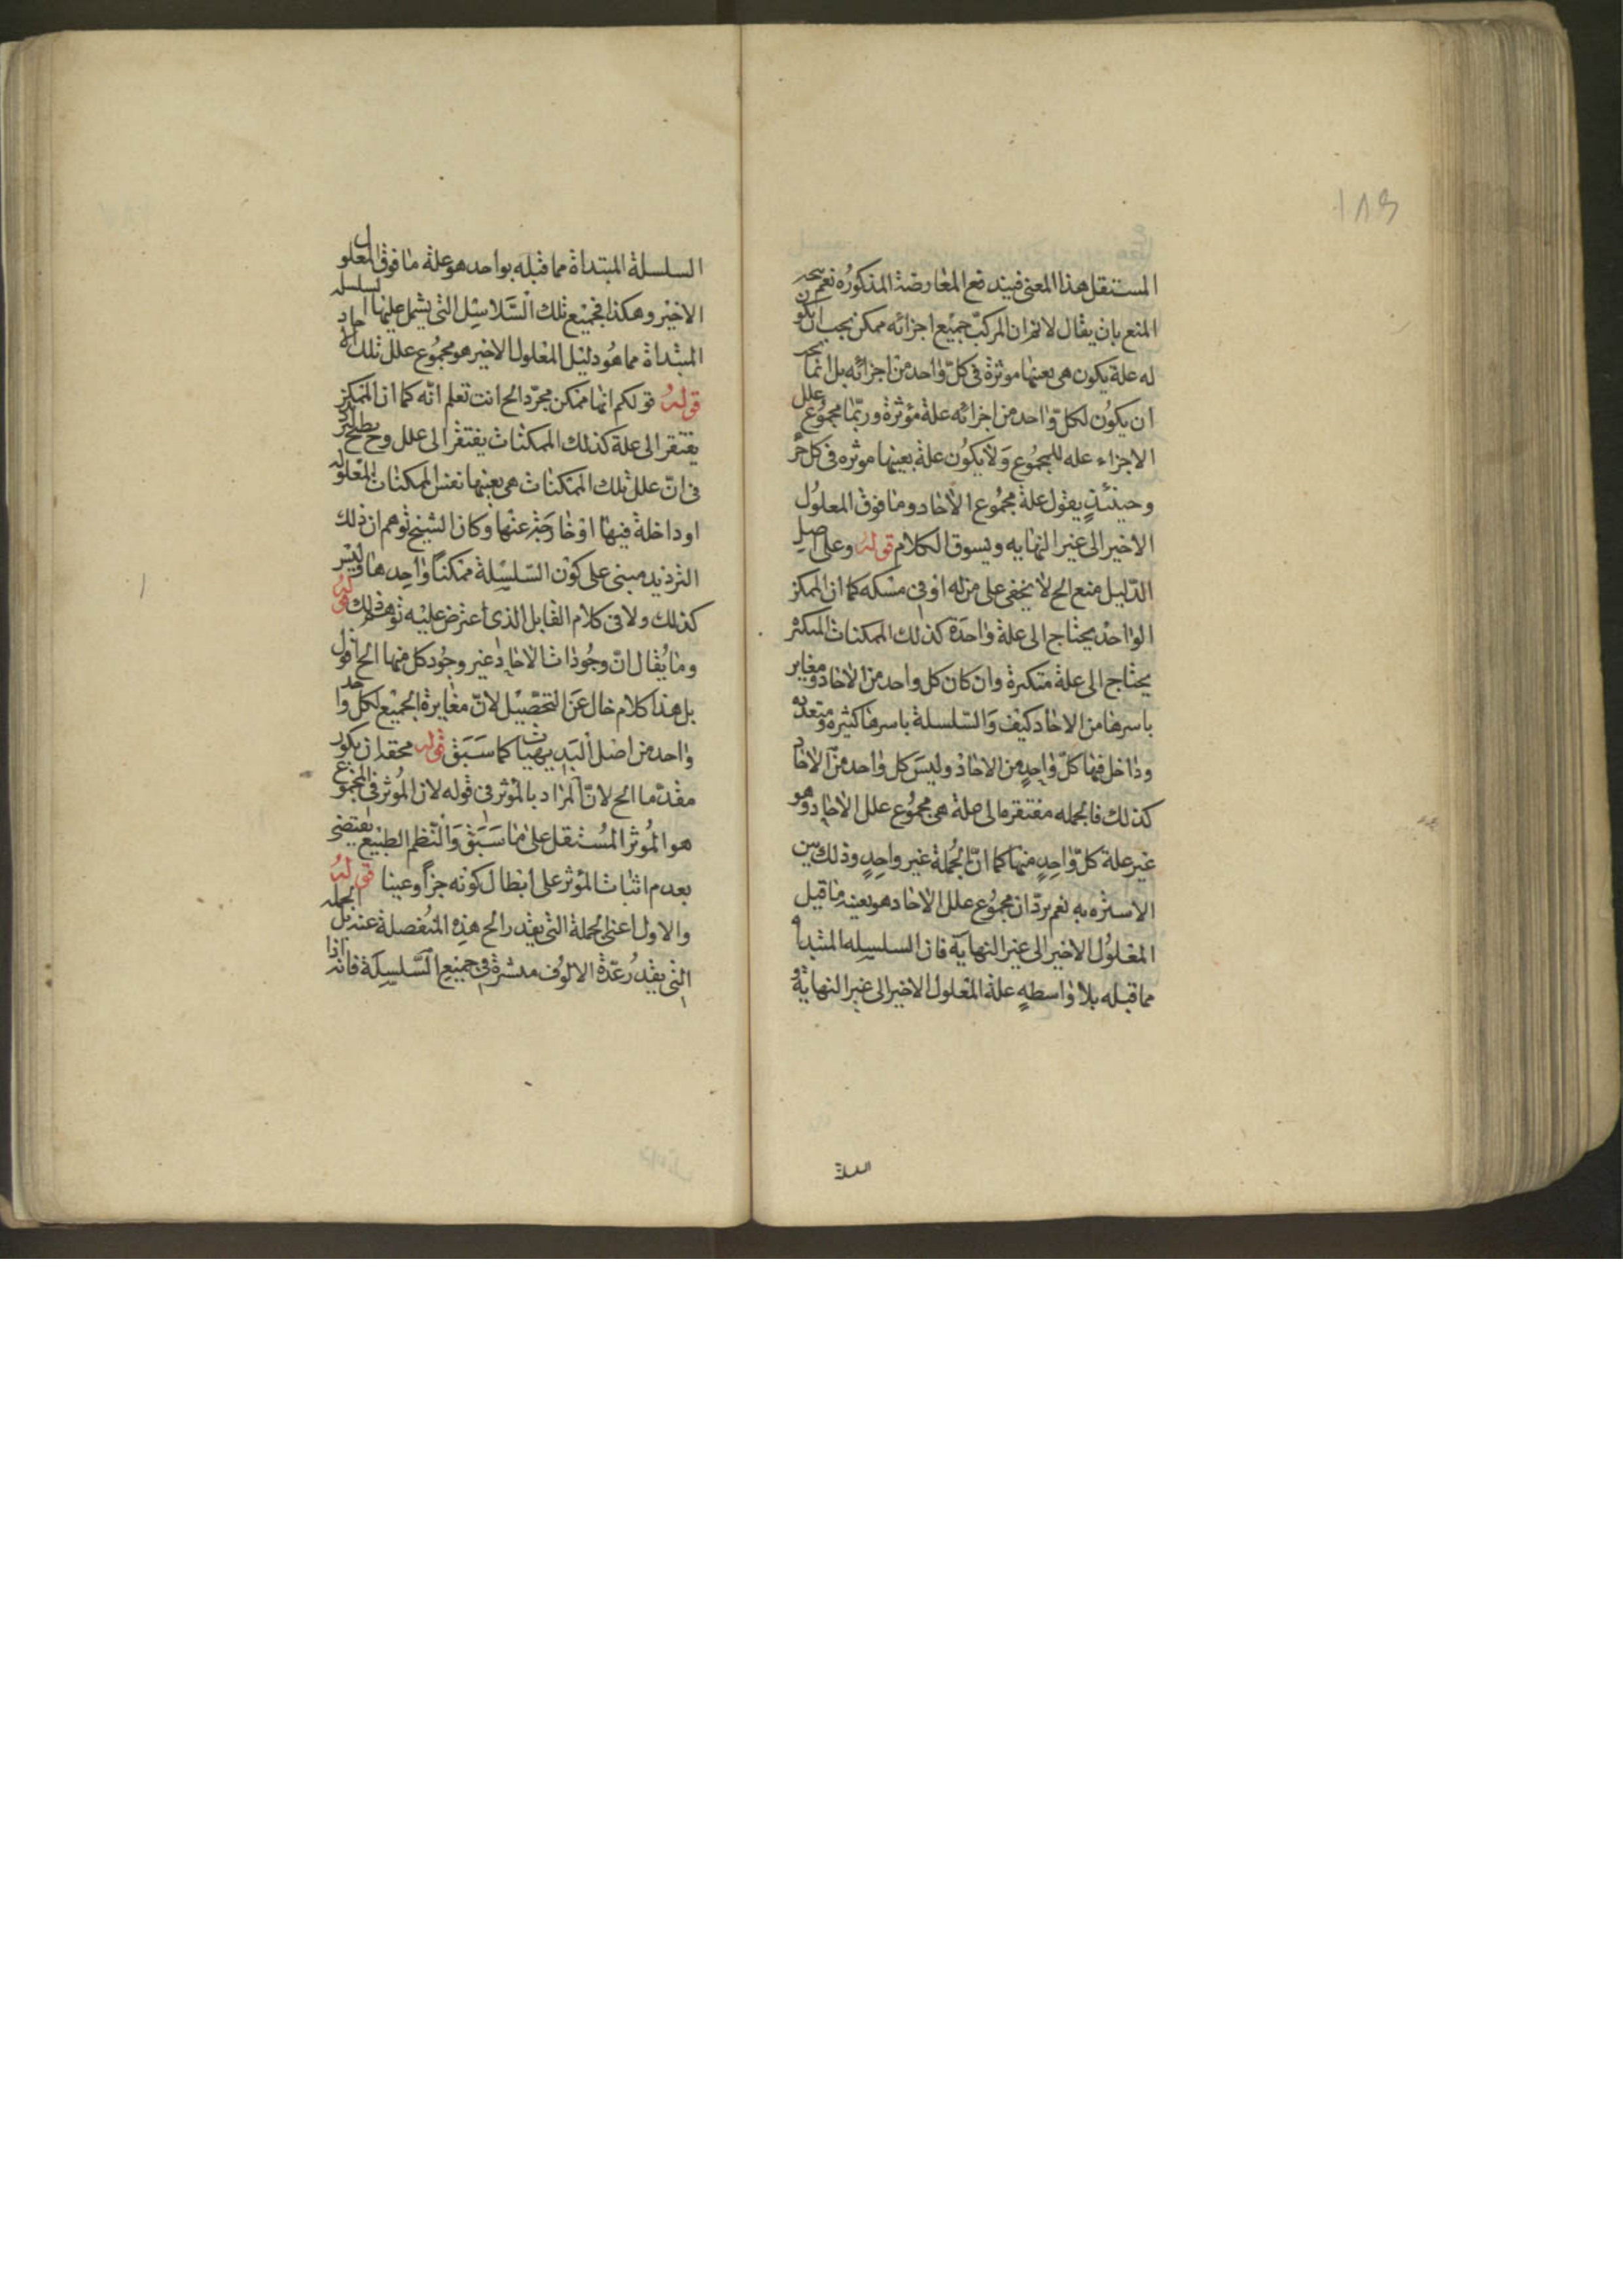 ١٨٩
المستقل هذا المعنى فيندفع المعارضة المذكوره نعم يتجه
المنع بان يقال لا نم ان المركب جميع اجزائه ممكن يجب ان يكون
له علة يكون هى بعينها موثرة فى كل واحد من اجزائه بل انما يجب
ان يكون لكل واحد من اجزائه علة مؤثرة وربما مجموع علل
الاجزاء عله للمجموع ولا يكون علة بعينها موثره فى كل جزء
وحينئذ يقول علة مجموع الآحاد وما فوق المعلول
الاخير الى غير النهايه ويسوق الكلام قوله وعلى اصل
الدليل منع الخ لا يخفى على من له ادنى مسكه كما ان الممكن
الواحد يحتاج الى علة واحدة كذلك الممكنات المتكثر
يحتاج الى علة متكثرة وان كان كل واحد من الآحاد ومغاير
باسرها من الاحاد كيف والسلسلة باسرها كثيره ومتعدده
وداخل فيها كل واحد من الآحاد وليس كل واحد من الآحاد
كذلك فالجمله مفتقره الى علة هى مجموع علل الآحاد وهو
غير علة كل واحد منها كما ان الجملة غير واحد وذلك بين
الاستره به نعم يرد ان مجموع علل الآحاد هو بعينه ما قبل
المعلول الاخير الى غير النهاية فان السلسله المبتداة
مما قبله بلا واسطه علة المعلول الاخير الى غير النهاية و
السلسلة
السلسلة المبتداة مما قبله بواحد هو علة ما فوق المعلول
الاخير وهكذا فجميع تلك السلاسل التى يشمل عليها السلسله
المبتداة مما هو دليل المعلول الاخير هو مجموع علل تلك الآحاد
قوله قولكم انها ممكن مجرد الخ انت تعلم انه كما ان الممكن
يفتقر الى علة كذلك الممكنات يفتقر الى علل وح
فى ان علل تلك الممكنات هى بعينها نفس الممكنات المعلوله
او داخلة فيها او خارجة عنها وكان الشيخ توهم ان ذلك
الترديد مبنى على كون السلسلة ممكنا واحدها وليس
كذلك ولا فى كلام القايل الذى اعترض عليه توهم ذلك قوله
وما يقال ان وجودات الآحاد غير وجود كل منها الخ اقول
بل هذا كلام خال عن التحصيل لان مغايرة الجميع لكل واحد
واحد من اصل البديهيات كما سبق قوله محقه ان يكون
مقدما الخ لان المراد بالمؤثر فى قوله لان المؤثر فى المجموع
هو المؤثر المستقل على ما سبق والنظم الطبيع يقتضى
بعدم اثبات المؤثر على ابطال كونه جزأ وعينا قوله
والاول اعنى الجملة التى يقدر الخ هذه المنفصلة عند بل الجمله
التى يقدر عدة الالوف منشرة فى جميع السلسلة فانه اذا